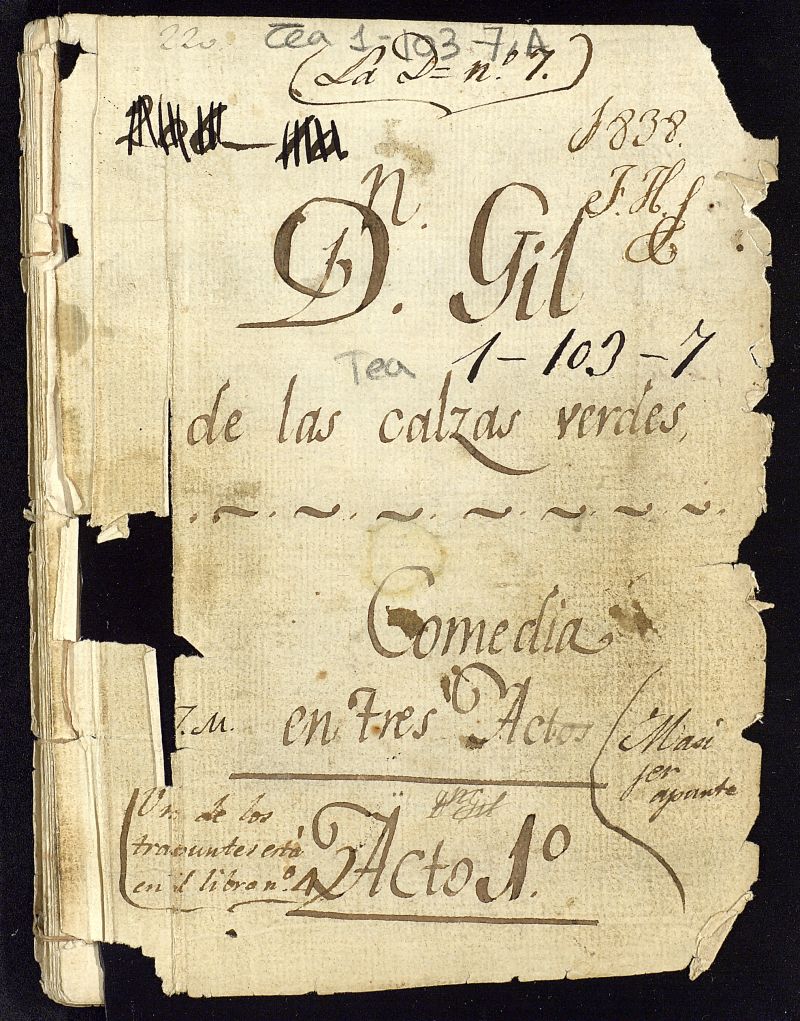 220
Tea 1-103-7, A
(La D= nº 7.)
1838.
J. H. f
Dn. Gil
Tea 1-103-7
de las calzas verdes,
Comedia
en tres Actos
J. M.
Un de los
trapuntes está
en el libro nº 4
Gil
Acto 1.º
1er
apunte